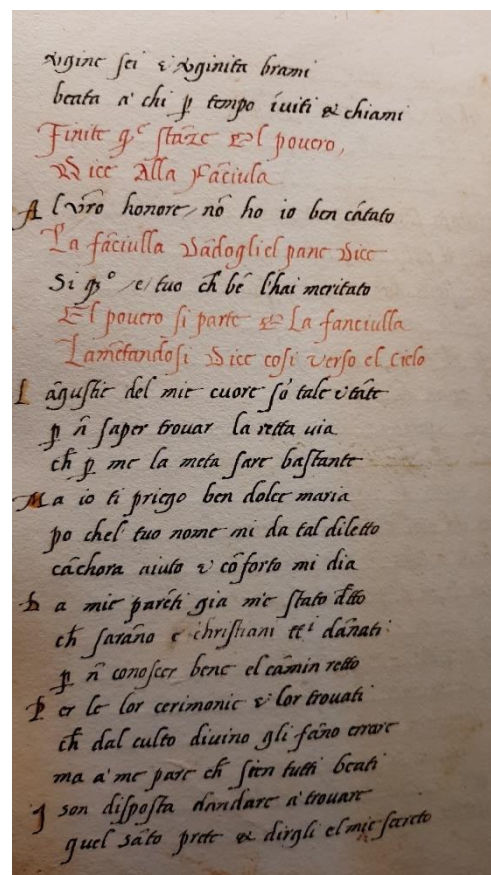 v̄gine sei & v̄ginita brami
beata a' chi p̱ tempo īuiti & chiami
Finite q̄ste stāze El pouero,
Dice Alla Fāciula
Al vr̄o honore, nō ho io ben cātato
La fāciulla Dādogli el pane Dice
Si q̄sto /e/ tuo ch̄ bē l'hai meritato
El pouero si parte & La fanciulla
Lamētandosi Dice cosi verso el Cielo
L āgustie del mie cuore sō tale & tāte
p̱ n̄ saper trouar la retta uia
ch̄ p̱ me la meta sare bastante
Ma io ti priego ben dolce maria
po chel tuo nome mi da tal diletto
cāchora aiuto & cōforto mi dia
Da mie parēti gia m'e stato d̄tto
ch̄ sarāno e christiani tt̄i dānati
p̱ n̄ conoscer bene el cāmin retto
Per le lor cerimonie & lor trouati
ch̄ dal culto diuino gli fāno errare
ma a' me pare ch̄ sien tutti beati
I son disposta dandare a' trouare
quel sāto prete & dirgli el mie secreto